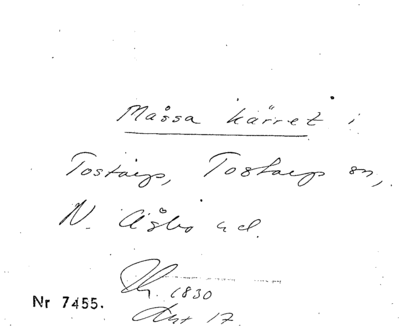 Måssa kärret i
Tostarp, Tostarp sn,
N. Åsbo hd.
1830
Akt 17
Nr 7455.